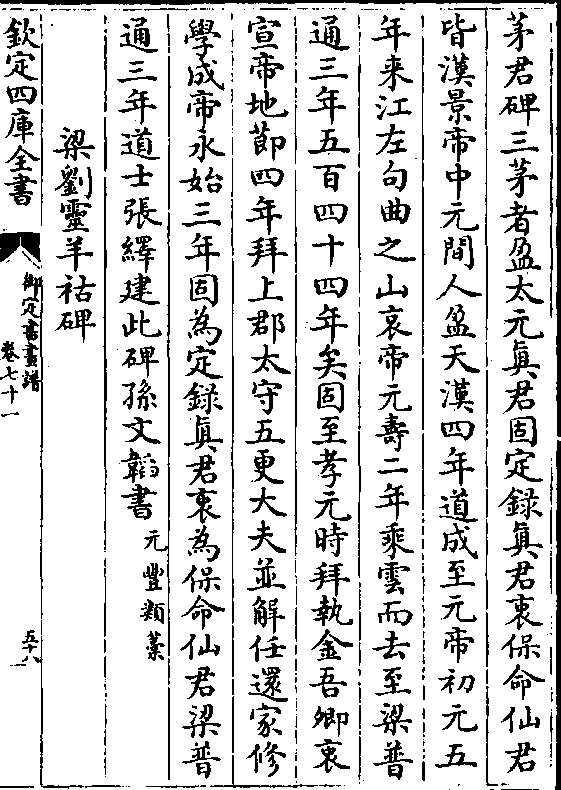 茅君碑三茅者盈太元真君固定録真君衷保命仙君
皆漢景帝中元間人盈天漢四年道成至元帝初元五
年来江左句曲之山哀帝元壽二年乘雲而去至梁普
通三年五百四十四年矣固至孝元時拜執金吾卿衷
宣帝地節四年拜上郡太守五更大夫並解任還家修
學成帝永始三年固為定録真君衷為保命仙君梁普
通三年道士張繹建此碑孫文韜書元豐類藁
梁劉靈羊祜碑
欽定四庫全書
御定書畫譜
卷七十一
五十八